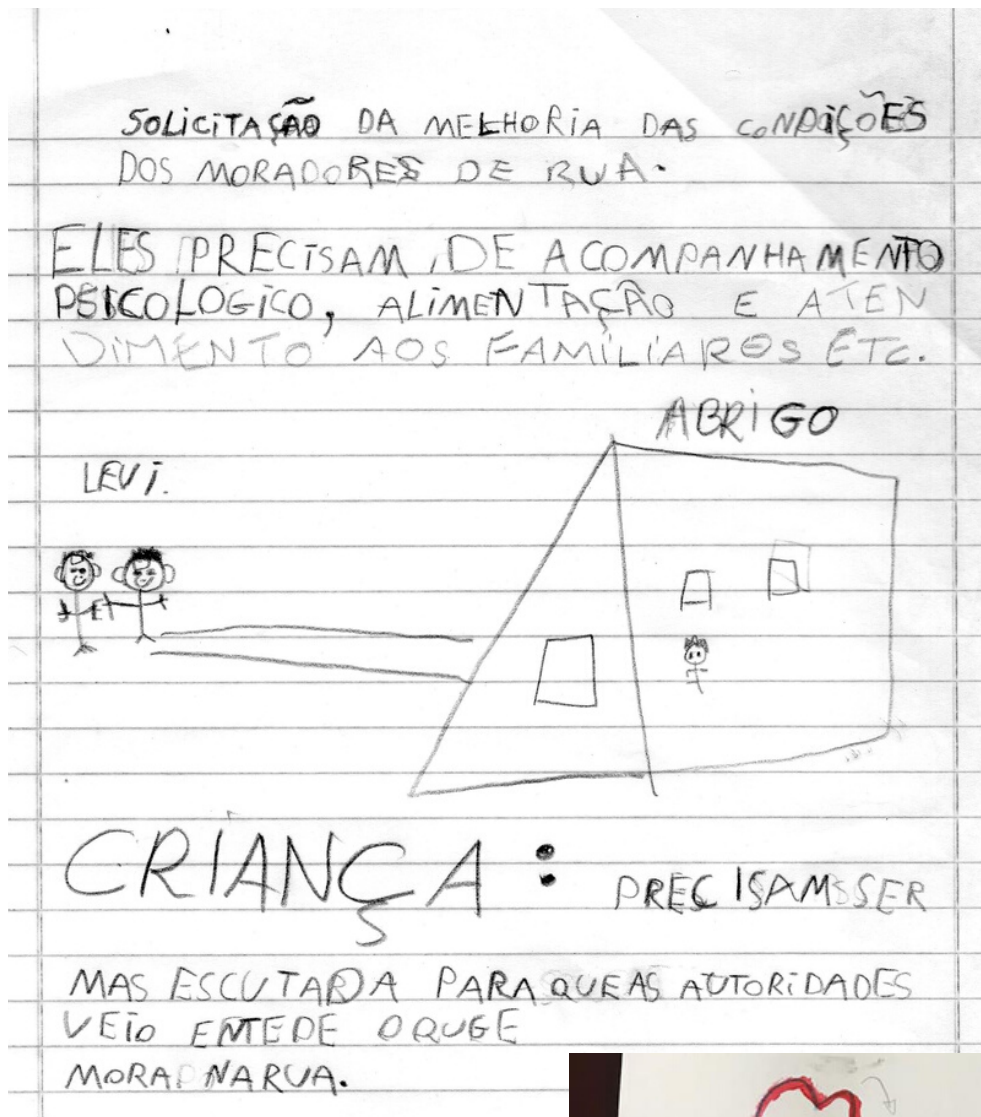 SOLICITAÇÃO DA MELHORIA DAS CONDIÇÕES
DOS MORADORES DE RUA.
ELES PRECISAM DE ACOMPANHAMENTO
PSICOLOGICO, ALIMENTAÇÃO E ATEN
DIMENTO AOS FAMILIAROS ETC.
ABRIGO
LEVI.
CRIANÇA: PRECISAM SER
MAS ESCUTADA PARA QUE AS AUTORIDADES
VEIO ENTEDE O QUGE
MORA NA RUA.